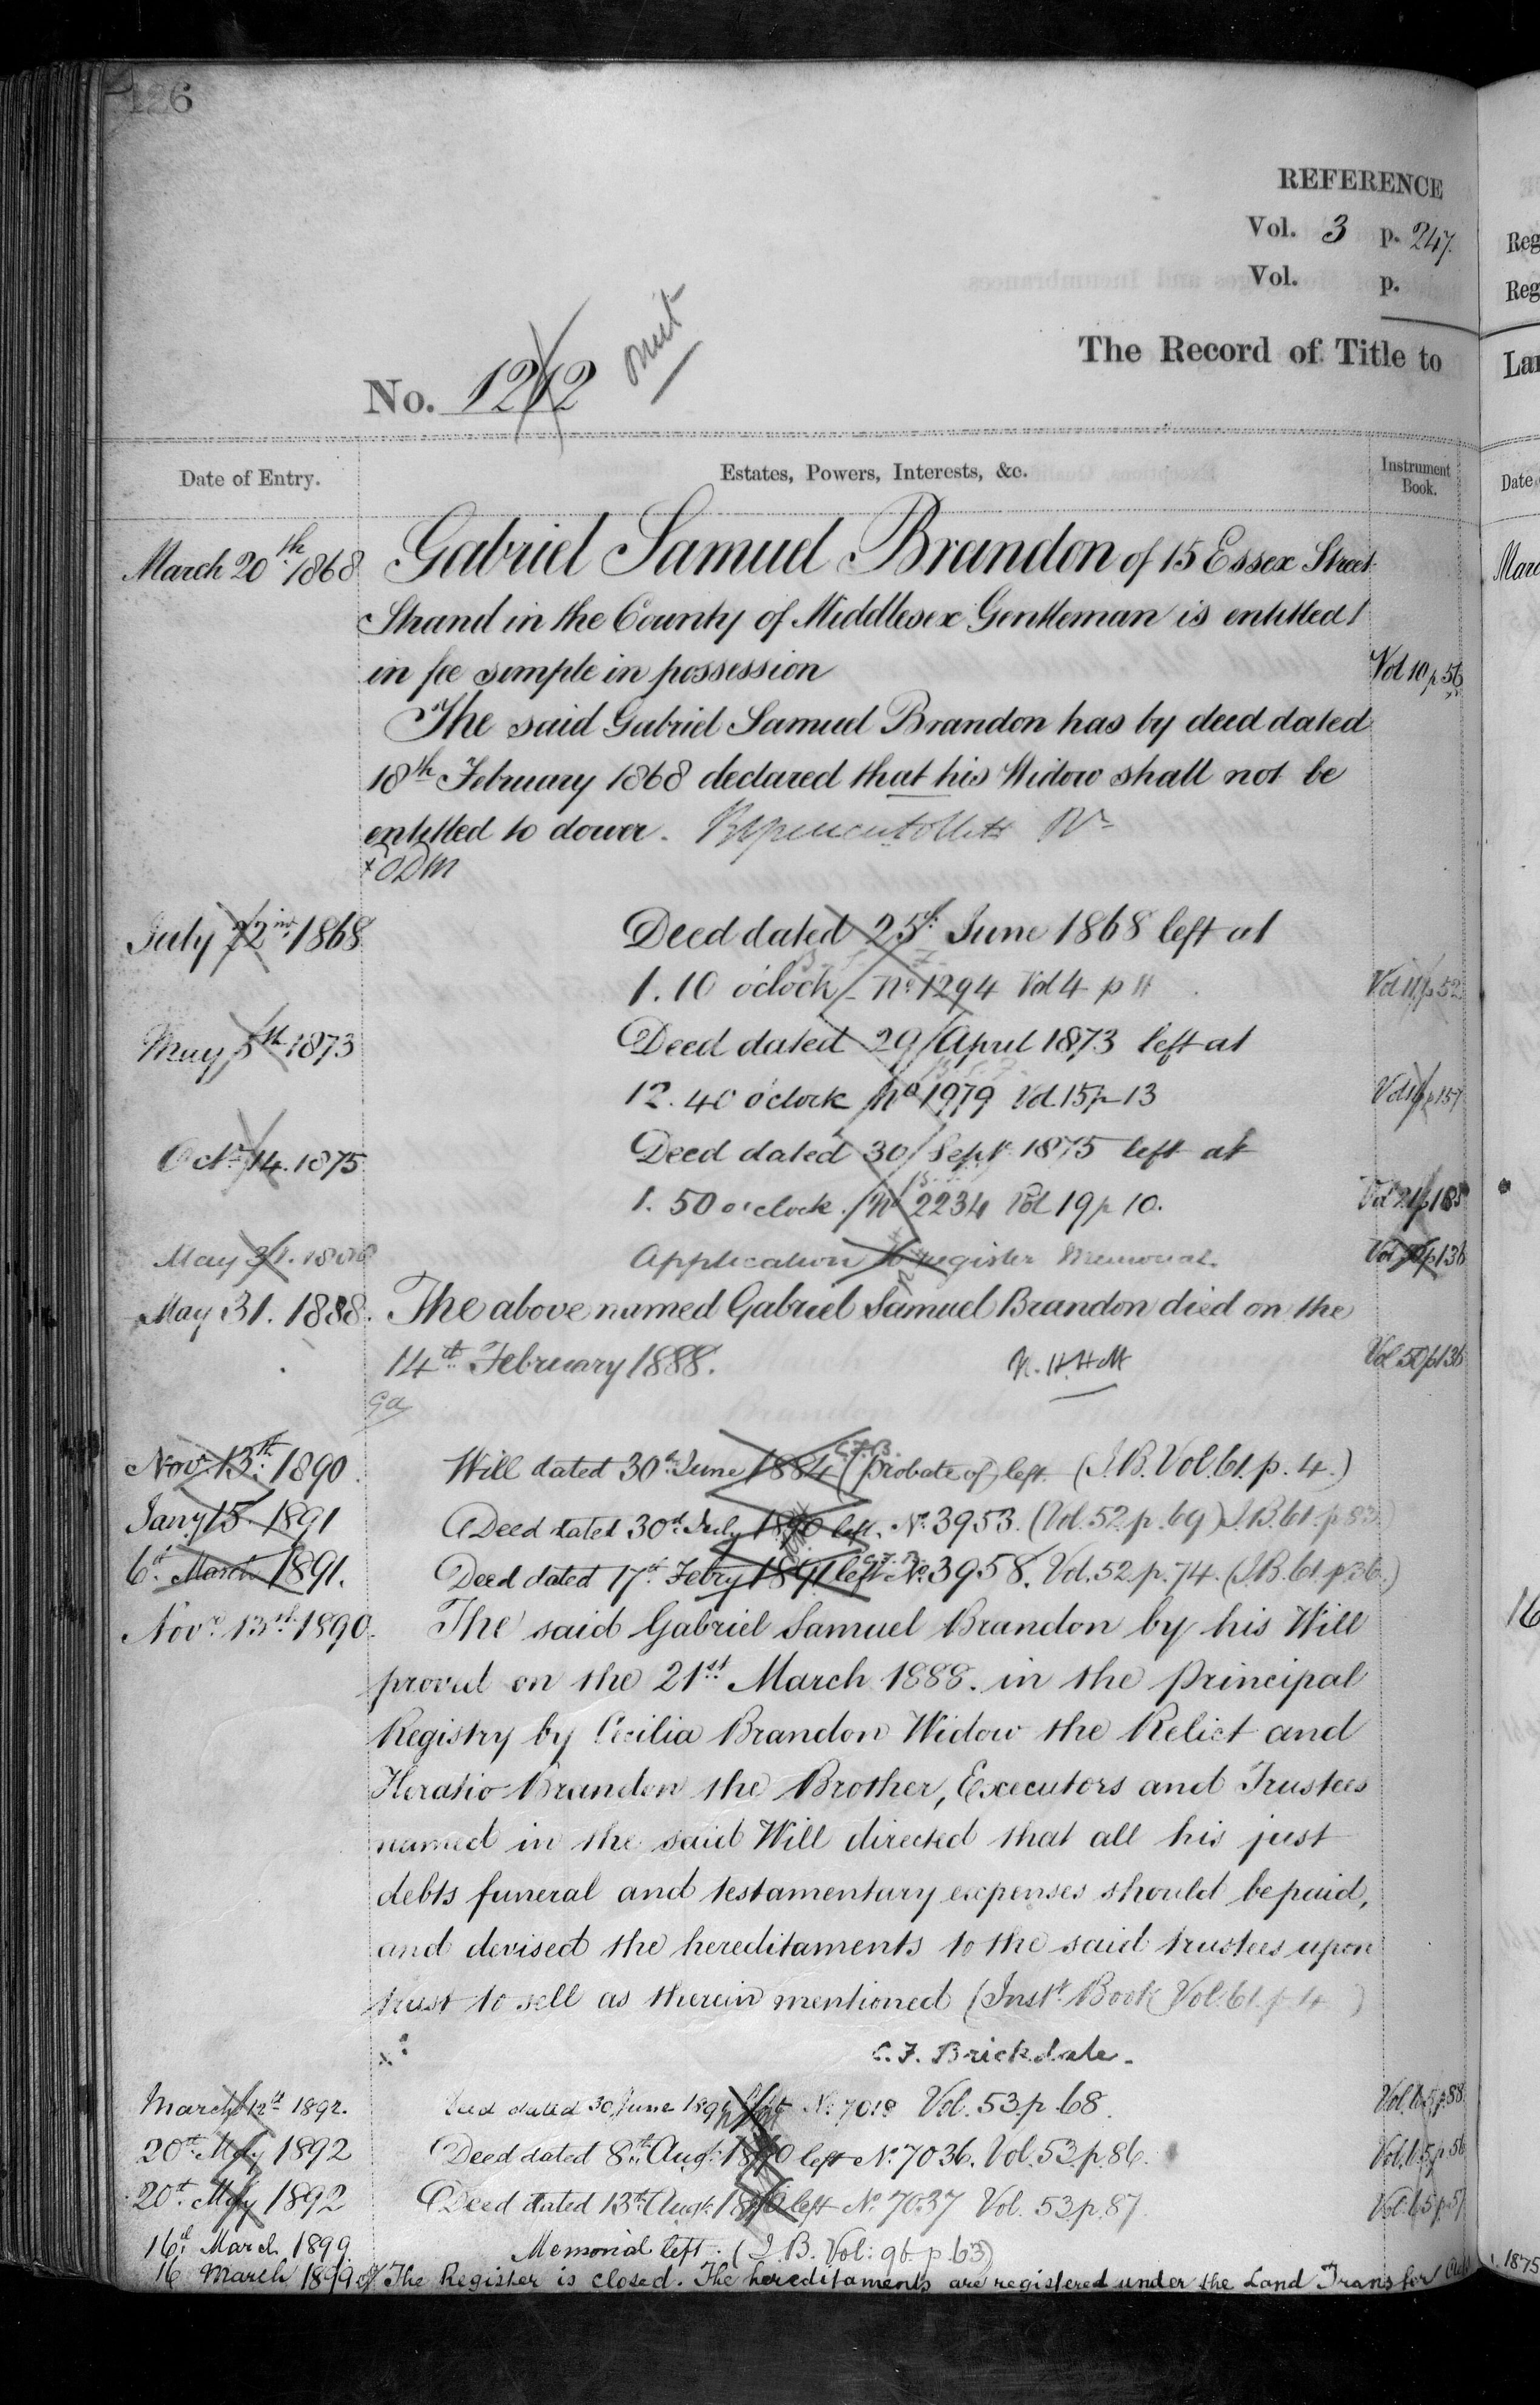 126
REFERENCE
Vol. 3 p. 247.
Vol. p.
The Record of Title to
No. 1212 omit
Date of Entry. Estates, Powers, Interests, &c. Instrument Book.
March 20th 1868 Gabriel Samuel Brandon of 15 Essex Street
Strand in the County of Middlesex Gentleman is entitled
in fee simple in possession Vol 10 p 56
The said Gabriel Samuel Brandon has by deed dated
18th February 1868 declared that his Widow shall not be
entitled to dower.
July 22nd 1868 Deed dated 25th June 1868 left at
1.10 o'clock No 1294 Vol 4 p 11 Vol 11 p 52
May 5th 1873 Deed dated 29 April 1873 left at
12.40 o'clock No 1979 Vol. 15 p 13 p 157
Octr 14. 1875 Deed dated 30 Sept 1875 left at
1.50 o'clock. No 2234 Vol 19 p 10. Vol 21 p 188
May 31. Application to register Memorial. Vol 50 p 136
May 31. 1888. The above named Gabriel Samuel Brandon died on the
14th February 1888. Vol 50 p 136
Novr 13th 1890. Will dated 30th June 1884 (probate of) left. (I.B. Vol. 61. p. 4.)
Jany 15 1891 Deed dated 30th July 1890 left. No 3953. (Vol. 52. p. 69) I.B. 61. p. 83.)
6th March 1891. Deed dated 17th Febry 1891 left No 3958. Vol. 52. p. 74. (I.B. 61. p. 36.)
Novr 13th 1890. The said Gabriel Samuel Brandon by his Will
proved on the 21st March 1888. in the Principal
Registry by Cecilia Brandon Widow the Relict and
Horatio Brandon the Brother, Executors and Trustees
named in the said Will directed that all his just
debts funeral and testamentary expenses should be paid,
and devised the hereditaments to the said trustees upon
trust to sell as therein mentioned (Instt Book Vol. 61. p. 4)
C. F. Brickdale.
March 12th 1892. Deed dated 30 June left No 7018 Vol. 53. p. 68. Vol. 65. p. 88
20th May 1892 Deed dated 8th Aug. 1890 left No 7036. Vol. 53. p. 86. Vol. 65. p. 56
20th May 1892 Deed dated 13th Aug. 1890 left No 7037 Vol. 53. p. 87. Vol. 65. p. 57
16th March 1899 Memorial left. (I.B. Vol: 96. p. 63)
16 March 1899 The Register is closed. The hereditaments are registered under the Land Transfer
Reg
Reg
Lan
Date
Marc
16
1875